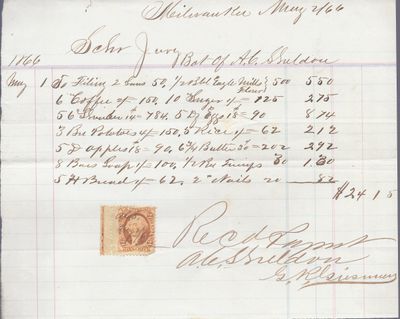 Milwaukee May 2/66
Schr June
1866 Bot of A. C. Sheldon
May 1 To Filing 2 Saws 50, 1/2 Bbl Eagle Mills Flour 500 5 50
6 Coffee 150, 10 " Sugar 125 2 75
56 784, 5 Eggs 18 = 90 8 74
3 Bus Potatoes 150, 5 Rice 62 2 12
5 # Apples 18 = 90, 6 3/4 Butter 30 = 202 2 92
8 Bars Soap 100, 1/2 30 1 30
5 # Bread 62, 2 " Nails 20 82
$24 15
Recd Paymt
A. C. Sheldon